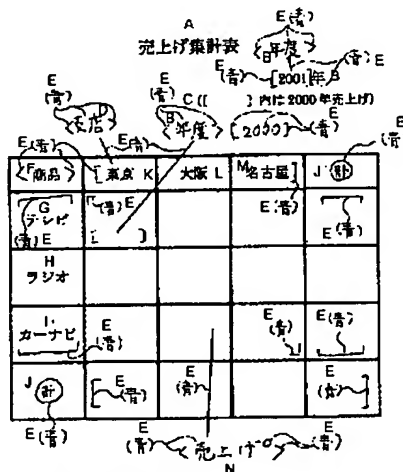 A
E (青)
売上げ集計表 〈B年度〉
E (青) [2001]年 B (青) E
E (青) D E (青) C ([ ] 内は2000年売上げ)
〈支店〉 E (青) 〈B年度〉 [2000] (青) E
E (青) E (青)
〈F商品〉 [東京 K 大阪 L M名古屋] J 計
G テレビ (青) E E (青) E (青)
(青) E [ ]
H
ラジオ
I
カーナビ E (青) E (青) E (青)
J 計 [E (青) E (青) E (青)]
E (青) E (青) 〈売上げ O〉 E (青)
N